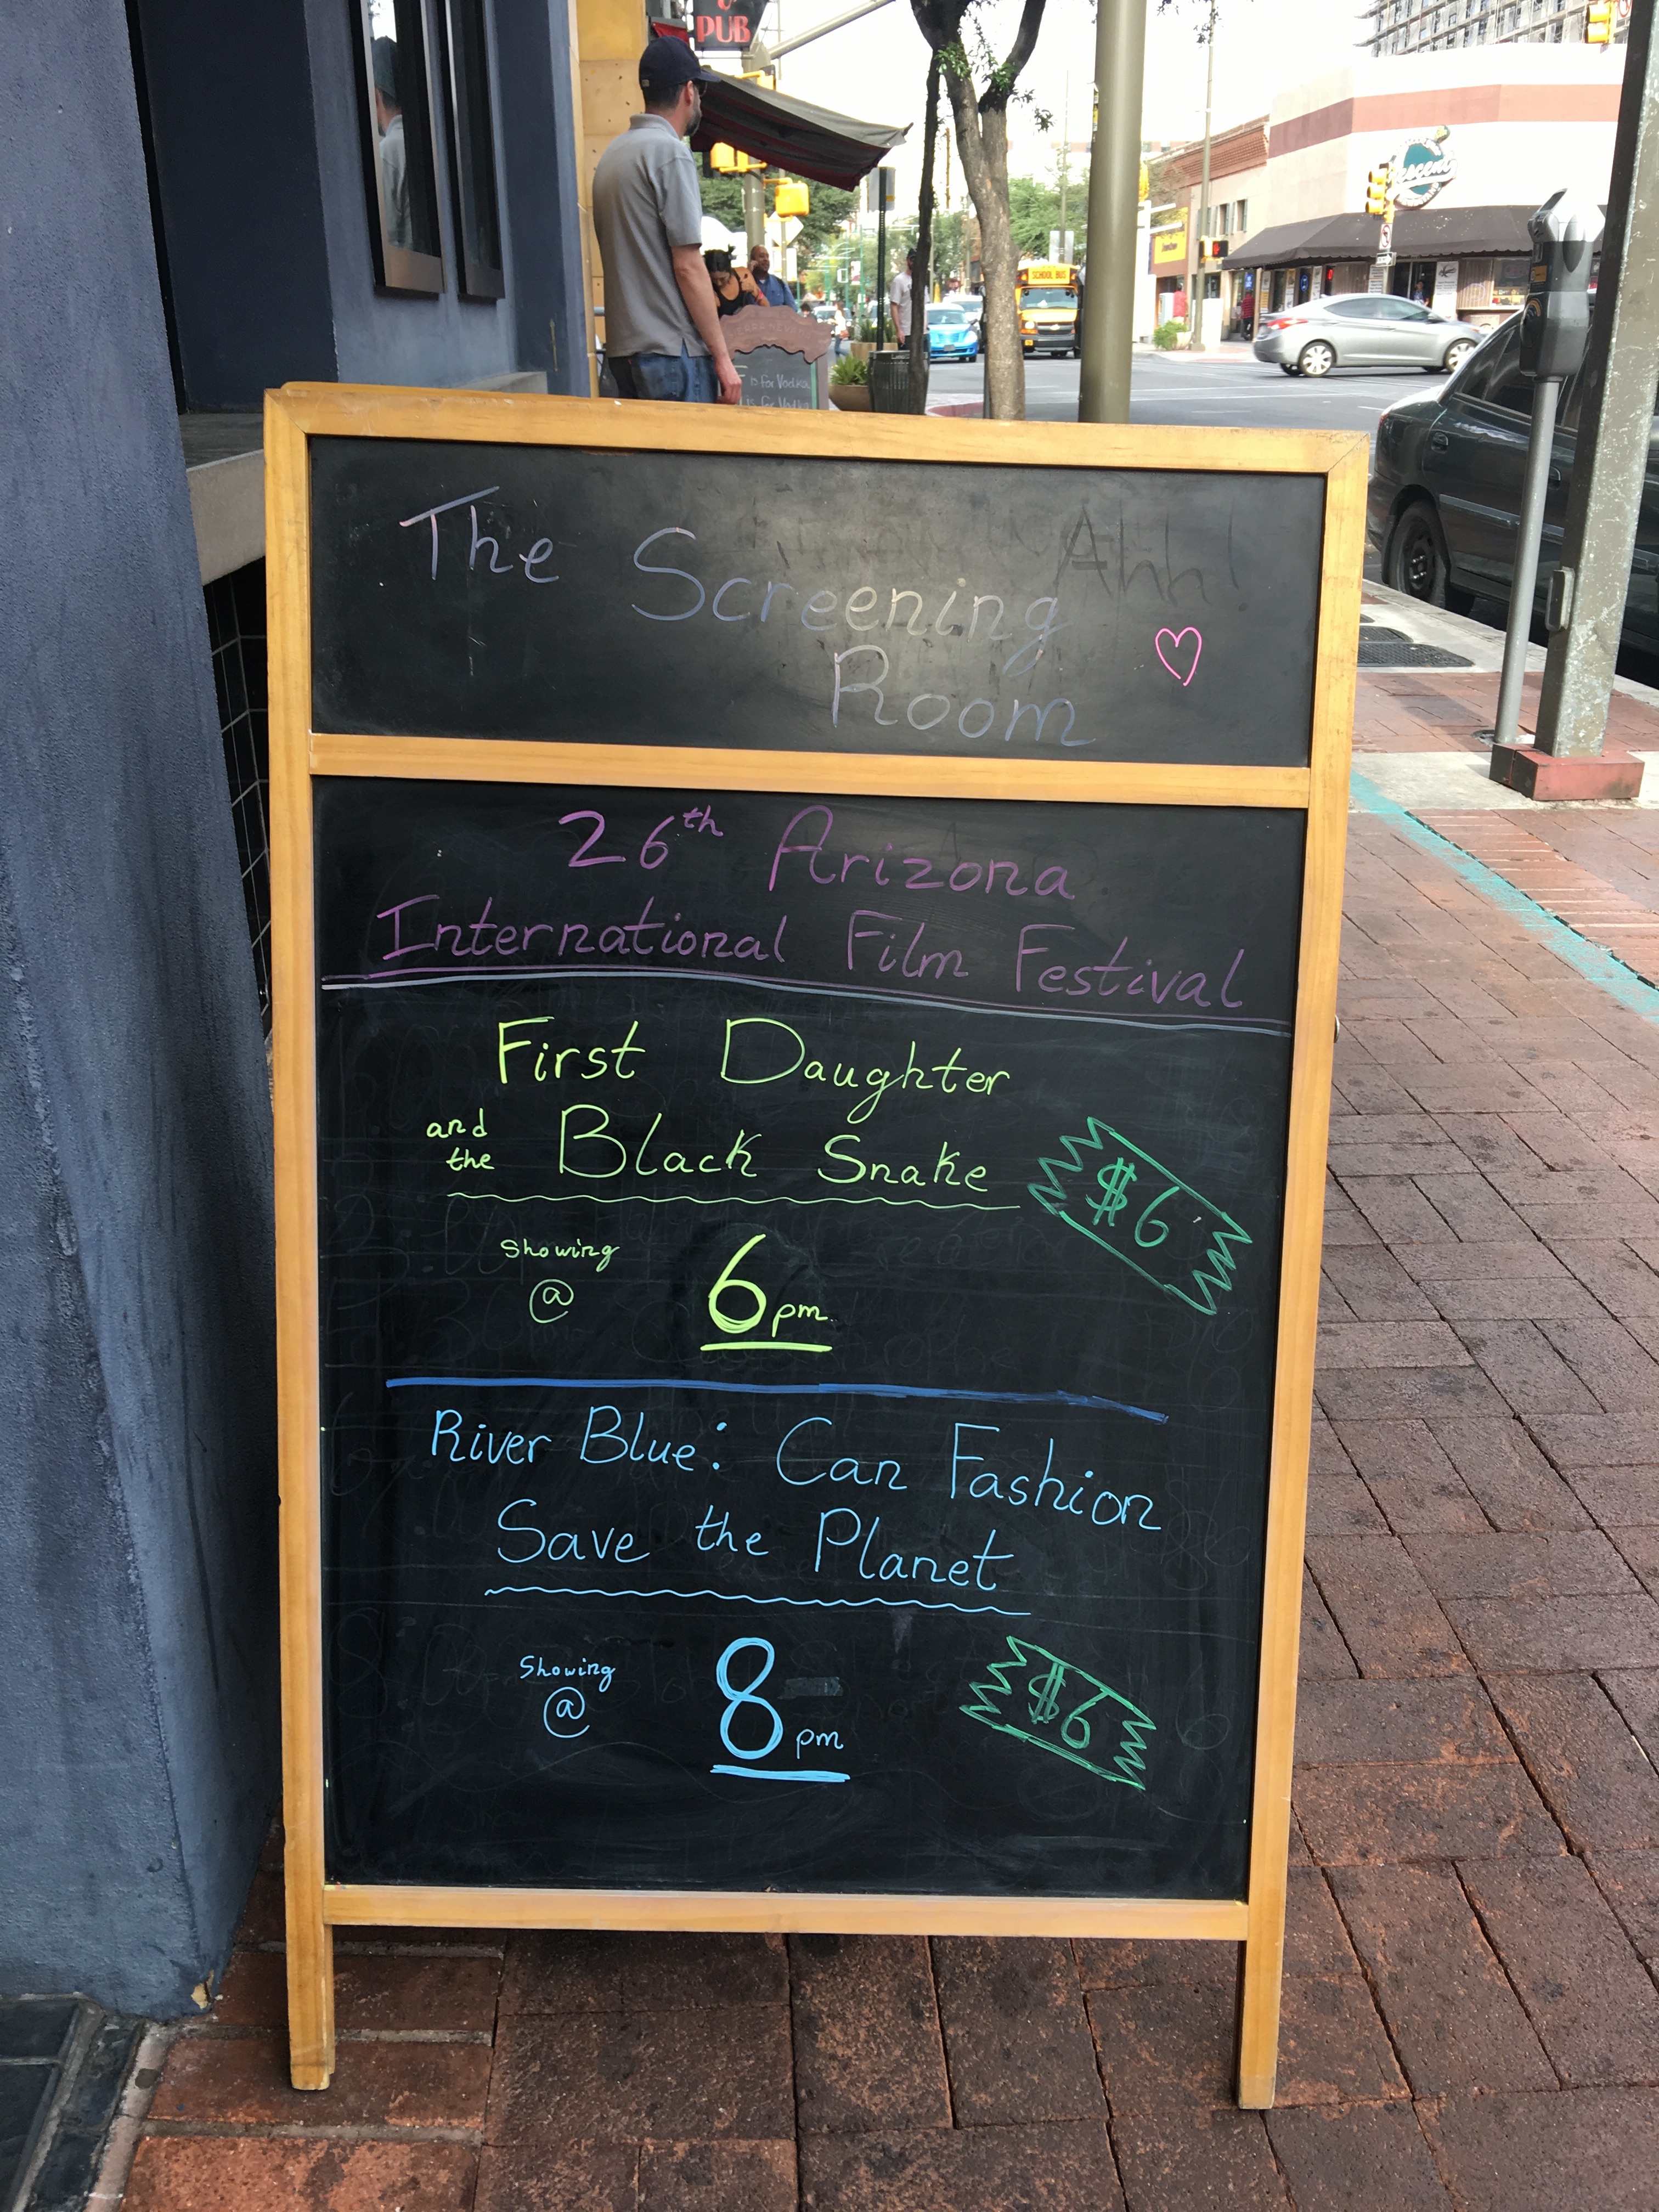 & PUB
SCHOOL BUS
F is for Vodka
is for Vodka
The
Screening
Room
Ahh!
26th Arizona
International Film Festival
First Daughter
and the Black Snake
$6
Showing @ 6pm
River Blue: Can Fashion
Save the Planet
Showing @ 8pm
$6